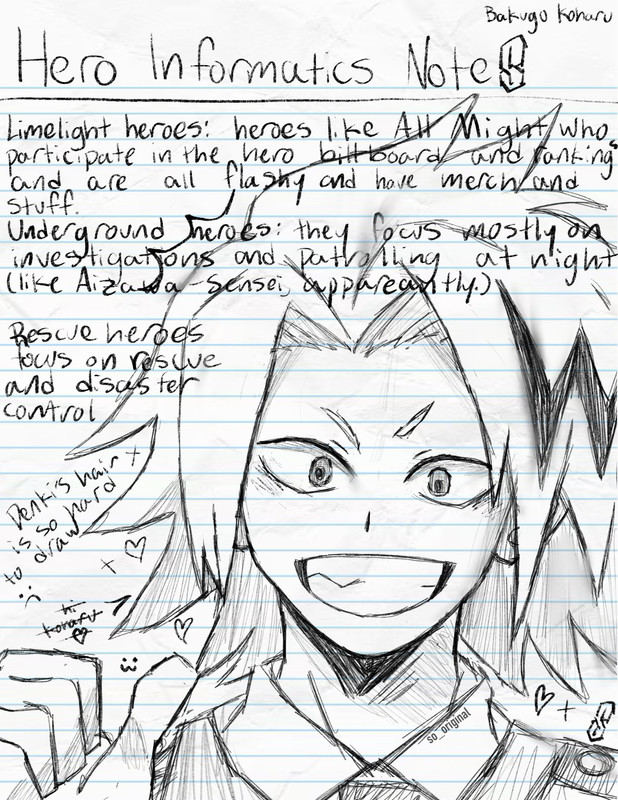 Bakugo Koharu
Hero Informatics Notes
Limelight heroes: heroes like All Might who
participate in the hero billboard and rankings
and are all flashy and have merch and
stuff.
Underground heroes: they focus mostly on
investigations and patrolling at night
(like Aizawa-Sensei, appareantly.)
Rescue heroes
focus on rescue
and disaster
control
Denki's hair
is so hard
to draw
:(
hi
Koharu
so_original